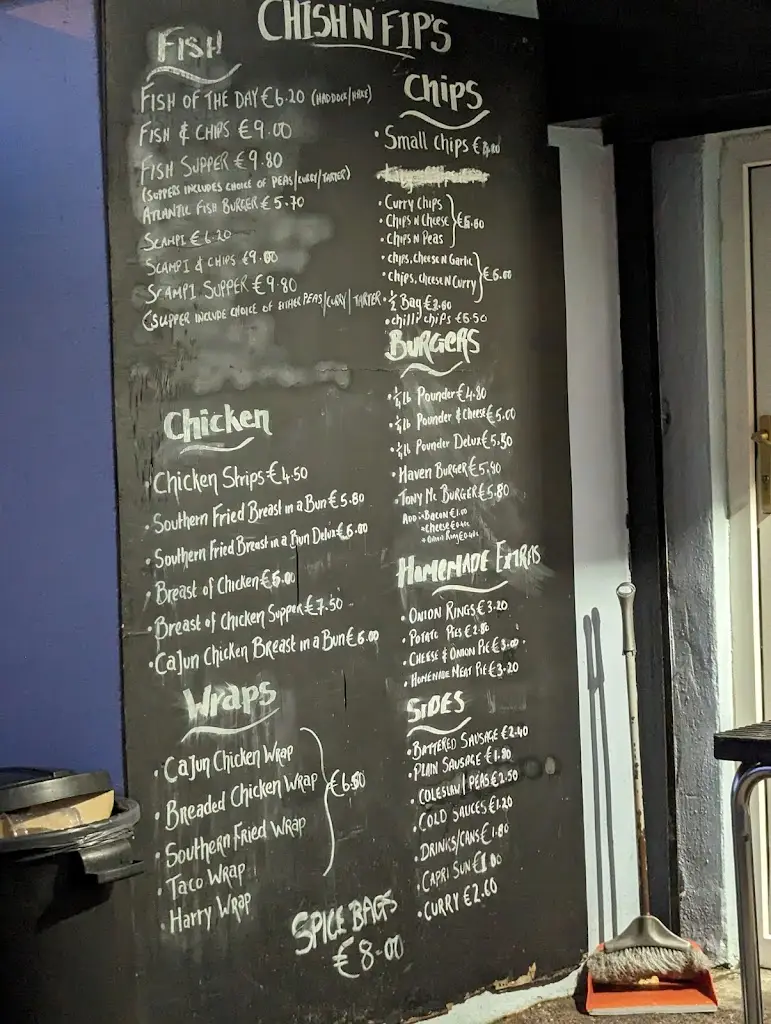 CHISH 'N' FIP'S
FISH
FISH OF THE DAY €6.20 (HADDOCK/HAKE)
FISH & CHIPS €9.00
FISH SUPPER €9.80
(SUPPERS INCLUDES CHOICE OF PEAS/CURRY/TARTER)
ATLANTIC FISH BURGER €5.70
SCAMPI €6.20
SCAMPI & CHIPS €9.00
SCAMPI SUPPER €9.80
(SUPPER INCLUDE CHOICE OF EITHER PEAS/CURRY/TARTER
Chicken
Chicken Strips €4.50
• Southern Fried Breast in a Bun €5.80
• Southern Fried Breast in a Bun Delux €6.00
• Breast of Chicken €5.00
• Breast of Chicken Supper €7.50
• Cajun Chicken Breast in a Bun €6.00
Wraps
• Cajun Chicken Wrap
• Breaded Chicken Wrap €6.50
• Southern Fried Wrap
• Taco Wrap
• Harry Wrap
SPICE BAGS
€8.00
Chips
• Small Chips €
• Curry Chips
• Chips N Cheese
• Chips N Peas
• chips, Cheese N Garlic
• chips, cheese N Curry €6.00
• ½ Bag €3.60
• chilli chips €6.50
BURGERS
• ¼ lb Pounder €4.80
• ¼ lb Pounder & Cheese €5.00
• ¼ lb Pounder Delux €5.30
• HAVEN BURGER €5.40
• TONY MC BURGER €5.80
ADD: • BACON €1.00
• CHEESE
• ONION RING
HOMEMADE EXTRAS
• ONION RINGS €3.20
• POTATO PIES €2.80
• CHEESE & ONION PIE €3.00
• HOMEMADE MEAT PIE €3.20
SIDES
• BATTERED SAUSAGE €2.40
• PLAIN SAUSAGE €1.80
• COLESLAW / PEAS €2.50
• COLD SAUCES €1.20
• DRINKS/CANS €1.80
• CAPRI SUN €1.00
• CURRY €2.00